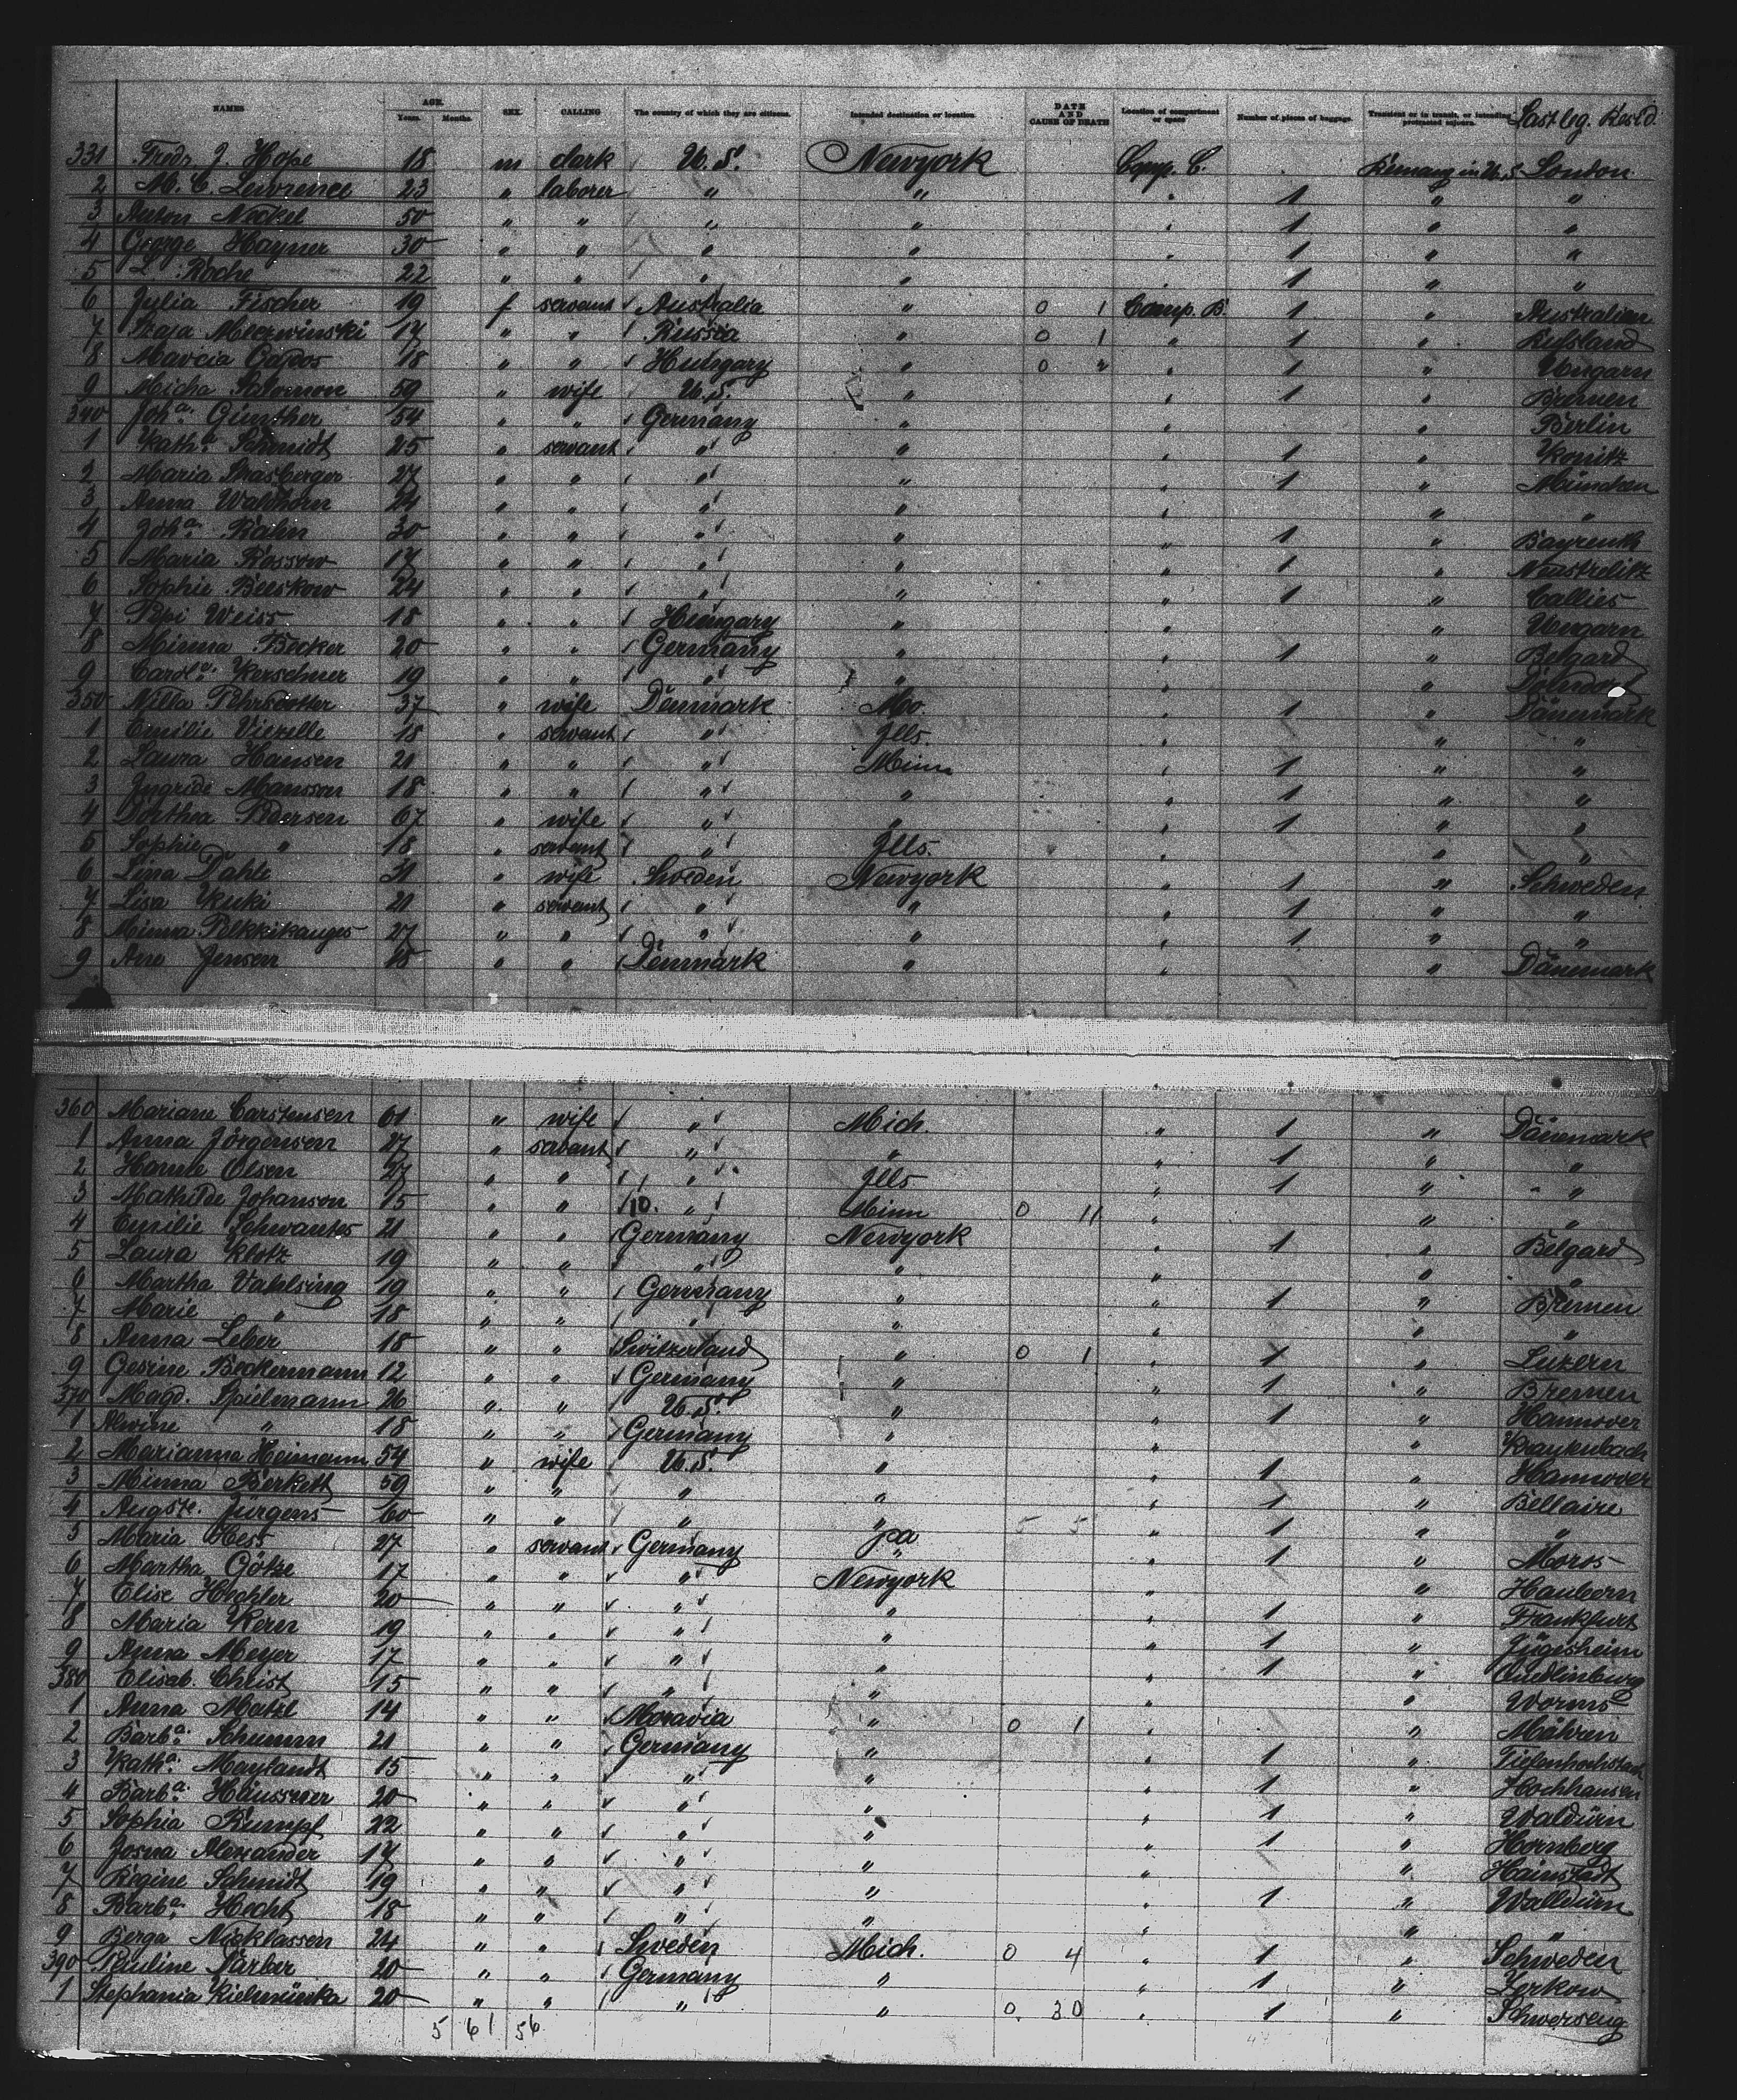 NAMES AGE. Years. Months. SEX. CALLING The country of which they are citizens. Intended destination or location. DATE AND CAUSE OF DEATH Location of compartment or space Number of pieces of baggage. Transient or in transit, or intending protracted sojourn. Last leg. Resid.
331 Fredr. J. Hope 18 m clerk U.S. Newyork Comp. C. Remang in U.S. London
2 M. C. Lewrence 23 " laborer " " " 1 " "
3 Anton Neckel 50 " " " " " 1 " "
4 George Hayner 30 " " " " " 1 " "
5 L. Roche 22 " " " " " 1 " "
6 Julia Fischer 19 f servant Australia " 0 1 Comp. B. 1 " Australien
7 Mierzwinski 17 " " Russia " 0 1 " 1 " Rußland
8 Marcia Gardos 18 " " Hungary " 0 " " 1 " Ungarn
9 Micha Salomon 59 " wife U.S. " " 1 " Bremen
340 Joha. Günther 54 " " Germany " " " Berlin
1 Katha. Schmidt 25 " servant " " " 1 " Konitz
2 Maria Strasberger 27 " " " " " 1 " München
3 Anna Waldhorn 24 " " " " " " "
4 Joha. Rahn 30 " " " " " 1 " Bayreuth
5 Maria Rossow 17 " " " " " 1 " Neustrelitz
6 Sophie Beeskow 24 " " " " " 1 " Callies
7 Pepi Weiss 18 " " Hungary " " " Ungarn
8 Minna Becker 20 " " Germany " " 1 " Belgard
9 Carola. Kerschner 19 " " " " " "
350 Nilta Pehrsdotter 37 " wife Denmark Mo. " 1 " Dänemark
1 Emilie Vierelle 18 " servant " Ills. " " "
2 Laura Hansen 21 " " " Minn " 1 " "
3 Ingride Mansson 18 " " " " " 1 " "
4 Dorthea Pedersen 67 " wife " " " 1 " "
5 Sophie " 18 " servant " Ills. " " "
6 Lina Dahl 31 " wife Sweden Newyork " 1 " Schweden
7 Lisa Kuki 21 " servant " " " 1 " "
8 Minna Pelkkikangas 27 " " " " " 1 " "
9 Ane Jensen 18 " " Denmark " " " Dänemark
360 Mariane Carstensen 61 " wife " Mich. " 1 " Dänemark
1 Anna Jörgensen 27 " servant " " " 1 " "
2 Hanne Olsen 27 " " " Ills " 1 " "
3 Mathilde Johanson 15 " " 10. " Minn 0 11 " " "
4 Emilie Schwantes 21 " " Germany Newyork " 1 " Belgard
5 Laura Klotz 19 " " " " " " "
6 Martha Vahlsing 19 " " Germany " " 1 " Bremen
7 Marie " 18 " " " " " " "
8 Anna Leber 18 " " Switzerland " 0 1 " 1 " Luzern
9 Gesine Beckermann 12 " " Germany " " 1 " Bremen
370 Magd. Spielmann 26 " " U.S. " " 1 " Hannover
1 Alwine " 18 " " Germany " " " Kraykenbach
2 Marianna Heimann 54 " wife U.S. " " 1 " Hannover
3 Minna Berkett 59 " " " " " 1 " Bellaire
4 Auguste. Jurgens 60 " " " " 5 5 " 1 " "
5 Maria Hess 27 " servant Germany pa " 1 " Moros
6 Martha Götze 17 " " " Newyork " " Haubern
7 Elise Hechler 20 " " " " " 1 " Frankfurt
8 Maria Kern 19 " " " " " 1 " Jügesheim
9 Anna Meyer 17 " " " " " 1 " Quedlinburg
380 Elisab. Christ 15 " " " " " " Worms
1 Anna Matzl 14 " " Moravia " 0 1 " " Mähren
2 Barba. Schumm 21 " " Germany " " 1 "
3 Katha. Maylandt 15 " " " " " 1 " Hochhausen
4 Barba. Häussner 20 " " " " " 1 " Waldürn
5 Sophia Rumpf 22 " " " " " 1 " Hornberg
6 Josua Alexander 17 " " " " " " Hainstadt
7 Regine Schmidt 19 " " " " " 1 " Walldürn
8 Barba. Hecht 18 " " " " " " "
9 Berga Nicklassen 24 " " Sweden Mich. 0 4 " 1 " Schweden
390 Pauline Färber 20 " " Germany " " 1 " Zerkow
1 Stephania Kielminska 20 " " " " 0. 30 " 1 " Schwerseng
5 61 56